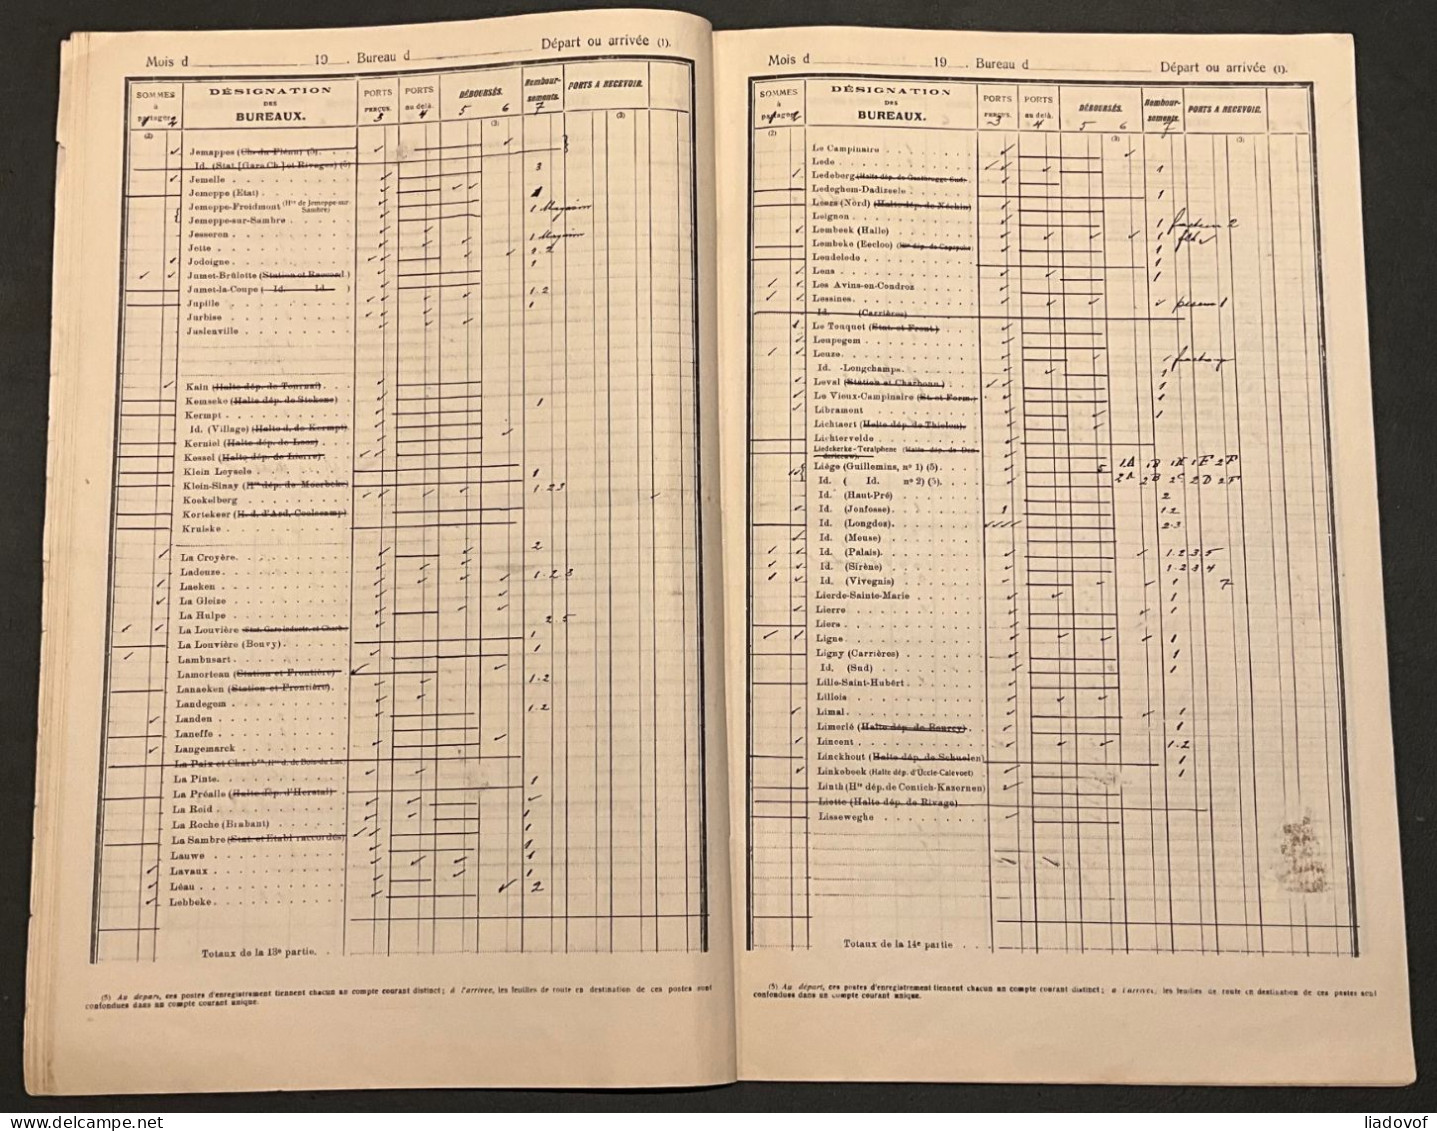 Mois d 19 . Bureau d Départ ou arrivée (1).
SOMMES à partager
DÉSIGNATION DES BUREAUX.
PORTS PERÇUS.
PORTS au delà.
DÉBOURSÉS.
Rembour-sements.
PORTS A RECEVOIR.
1 2 3 4 5 6 7
(2) (3) (3)
Jemappes (Ch. du Flénu) (5).
Id. (Stat [Gare Ch] et Rivages) (5)
Jemelle 3
Jemeppe (Etat) 1
Jemeppe-Froidmont (Hte de Jemeppe-sur-Sambre) 1 Magasin
Jemeppe-sur-Sambre
Jesseren 1 Magasin
Jette 1-2
Jodoigne 1
Jumet-Brûlotte (Station et Raccord.)
Jumet-la-Coupe ( Id. Id. ) 1-2
Jupille 1
Jurbise
Juslenville
Kain (Halte dép. de Tournai)
Kemseke (Halte dép. de Stekene) 1
Kermpt
Id. (Village) (Halte d. de Kermpt)
Kerniel (Halte dép. de Looz)
Kessel (Halte dép. de Lierre)
Klein Leysele 1
Klein-Sinay (Hte dép. de Moerbeke) 1-2 3
Koekelberg
Kortekeer (H. d. d'Asd, Coolscamp)
Kruiske
La Croyère 2
Ladeuze
Laeken 1-2 3
La Gleize
La Hulpe
La Louvière (Stat. Gare industr. et Charb. 2 5
La Louvière (Bouvy) 1
Lambusart 1
Lamorteau (Station et Frontière)
Lanaeken (Station et Frontière) 1-2
Landegem
Landen 1-2
Laneffe
Langemarck
La Paix et Charbns, Hte d. de Bois-du-Luc
La Pinte 1
La Préalle (Halte dép. d'Herstal)
La Reid
La Roche (Brabant) 1
La Sambre (Stat. et Etabl raccordés) 1
Lauwe 1
Lavaux 1
Léau 2
Lebbeke
Totaux de la 13e partie.
(5) Au départ, ces postes d'enregistrement tiennent chacun un compte courant distinct; à l'arrivée, les feuilles de route en destination de ces postes sont
confondues dans un compte courant unique.
Mois d 19 . Bureau d Départ ou arrivée (1).
SOMMES à partager
DÉSIGNATION DES BUREAUX.
PORTS PERÇUS.
PORTS au delà.
DÉBOURSÉS.
Rembour-sements.
PORTS A RECEVOIR.
1 2 3 4 5 6 7
(2) (3) (3)
Le Campinaire
Lede 1
Ledeberg (Halte dép. de Gentbrugge Sud)
Ledeghem-Dadizeele 1
Leers (Nord) (Halte dép. de Néchin)
Leignon 1 facteur 2
Lembeek (Halle) 1
Lembeke (Eecloo) (Hte dép. de Caprycke) 1
Lendelede 1
Lens 1
Les Avins-en-Condroz
Lessines
Id. (Carrières)
Le Touquet (Stat. et Front.)
Leupegem
Leuze
Id. -Longchamps 1
Leval (Station et Charbonn.) 1
Le Vieux-Campinaire (St. et Form.) 1
Libramont 1
Lichtaert (Halte dép. de Thielen)
Lichtervelde
Liedekerke-Teralphene (Halte dép. de Denderleeuw)
Liège (Guillemins, n° 1) (5) 5 1A 1B 1C 1E 2F
Id. ( Id. n° 2) (5) 2A 2B 2C 2D 2F
Id. (Haut-Pré) 2
Id. (Jonfosse) 1 1-2
Id. (Longdoz) 2-3
Id. (Meuse)
Id. (Palais) 1-2 3 5
Id. (Sirène) 1-2 3 4
Id. (Vivegnis) 1 7
Lierde-Sainte-Marie 1
Lierre 1
Liers
Ligne 1
Ligny (Carrières) 1
Id. (Sud) 1
Lille-Saint-Hubert
Lillois
Limal 1
Limerlé (Halte dép. de Bourcy) 1
Lincent 1-2
Linckhout (Halte dép. de Schuelen) 1
Linkebeek (Halte dép. d'Uccle-Calevoet) 1
Linth (Hte dép. de Contich-Kasernen)
Liotte (Halte dép. de Rivage)
Lisseweghe
Totaux de la 14e partie
(5) Au départ, ces postes d'enregistrement tiennent chacun un compte courant distinct; à l'arrivée, les feuilles de route en destination de ces postes sont
confondues dans un compte courant unique.
liadovof